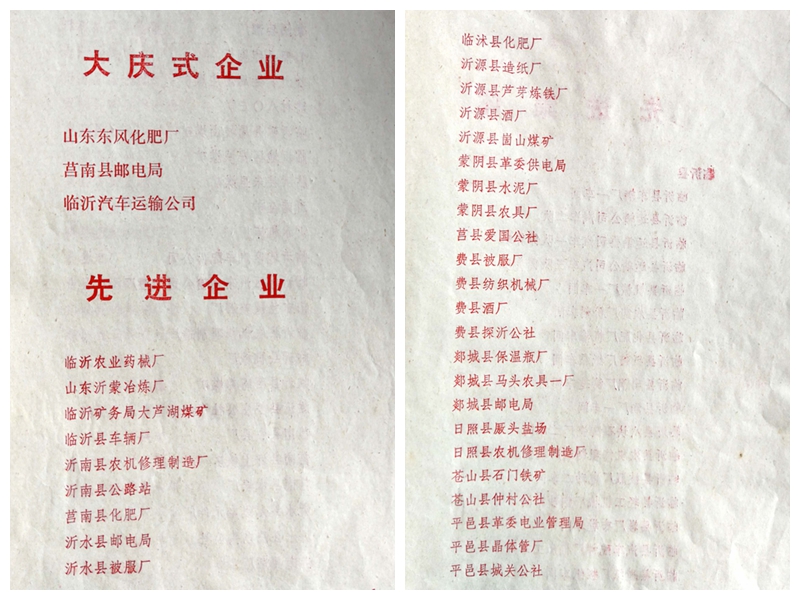 大庆式企业
山东东风化肥厂
莒南县邮电局
临沂汽车运输公司
先进企业
临沂农业药械厂
山东沂蒙冶炼厂
临沂矿务局大芦湖煤矿
临沂县车辆厂
沂南县农机修理制造厂
沂南县公路站
莒南县化肥厂
沂水县邮电局
沂水县被服厂
临沭县化肥厂
沂源县造纸厂
沂源县芦芽炼铁厂
沂源县酒厂
沂源县崮山煤矿
蒙阴县革委供电局
蒙阴县水泥厂
蒙阴县农具厂
莒县爱国公社
费县被服厂
费县纺织机械厂
费县酒厂
费县探沂公社
郯城县保温瓶厂
郯城县马头农具一厂
郯城县邮电局
日照县厫头盐场
日照县农机修理制造厂
苍山县石门铁矿
苍山县仲村公社
平邑县革委电业管理局
平邑县晶体管厂
平邑县城关公社